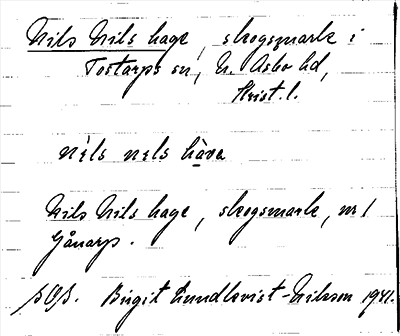 Nils Nils hage, skogsmark i
Tostarps sn, N. Åsbo hd,
Krist. l.
nils nils hava
Nils Nils hage, skogsmark, nr 1
Gånarp.
Birgit Lundkvist-Nilsson 1941.